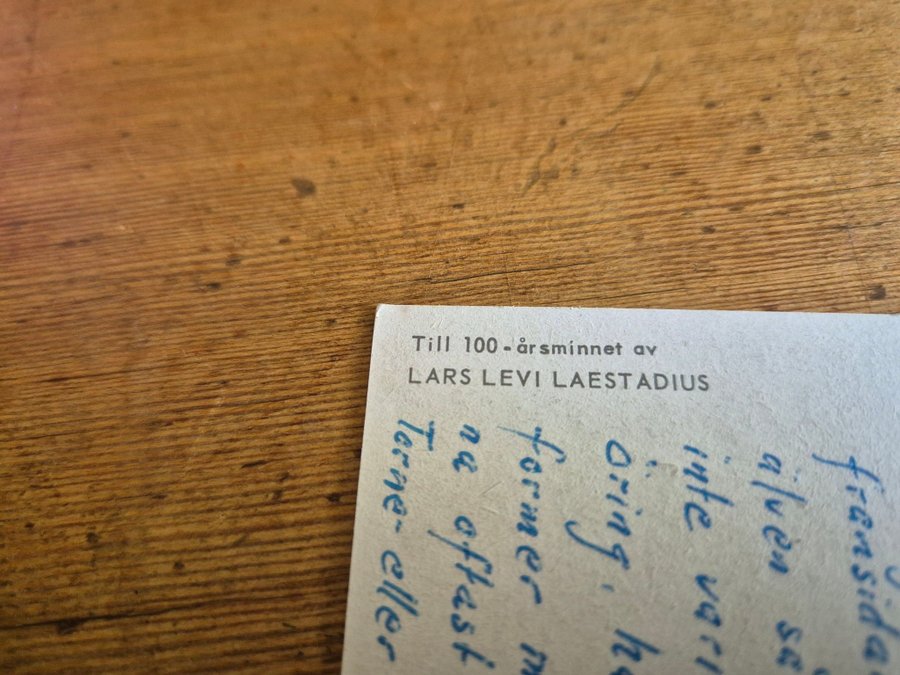 Till 100-årsminnet av
LARS LEVI LAESTADIUS
älven
inte
öring,
former
nu oftast
Torne- eller